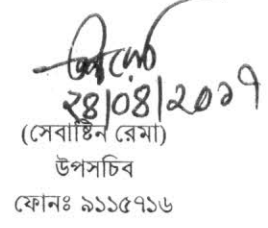 ২৪|০৪|২০১৭
(সেবাষ্টিন রেমা)
উপসচিব
ফোনঃ ৯১১৫৭১৬